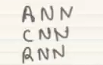 ANN
CNN
RNN